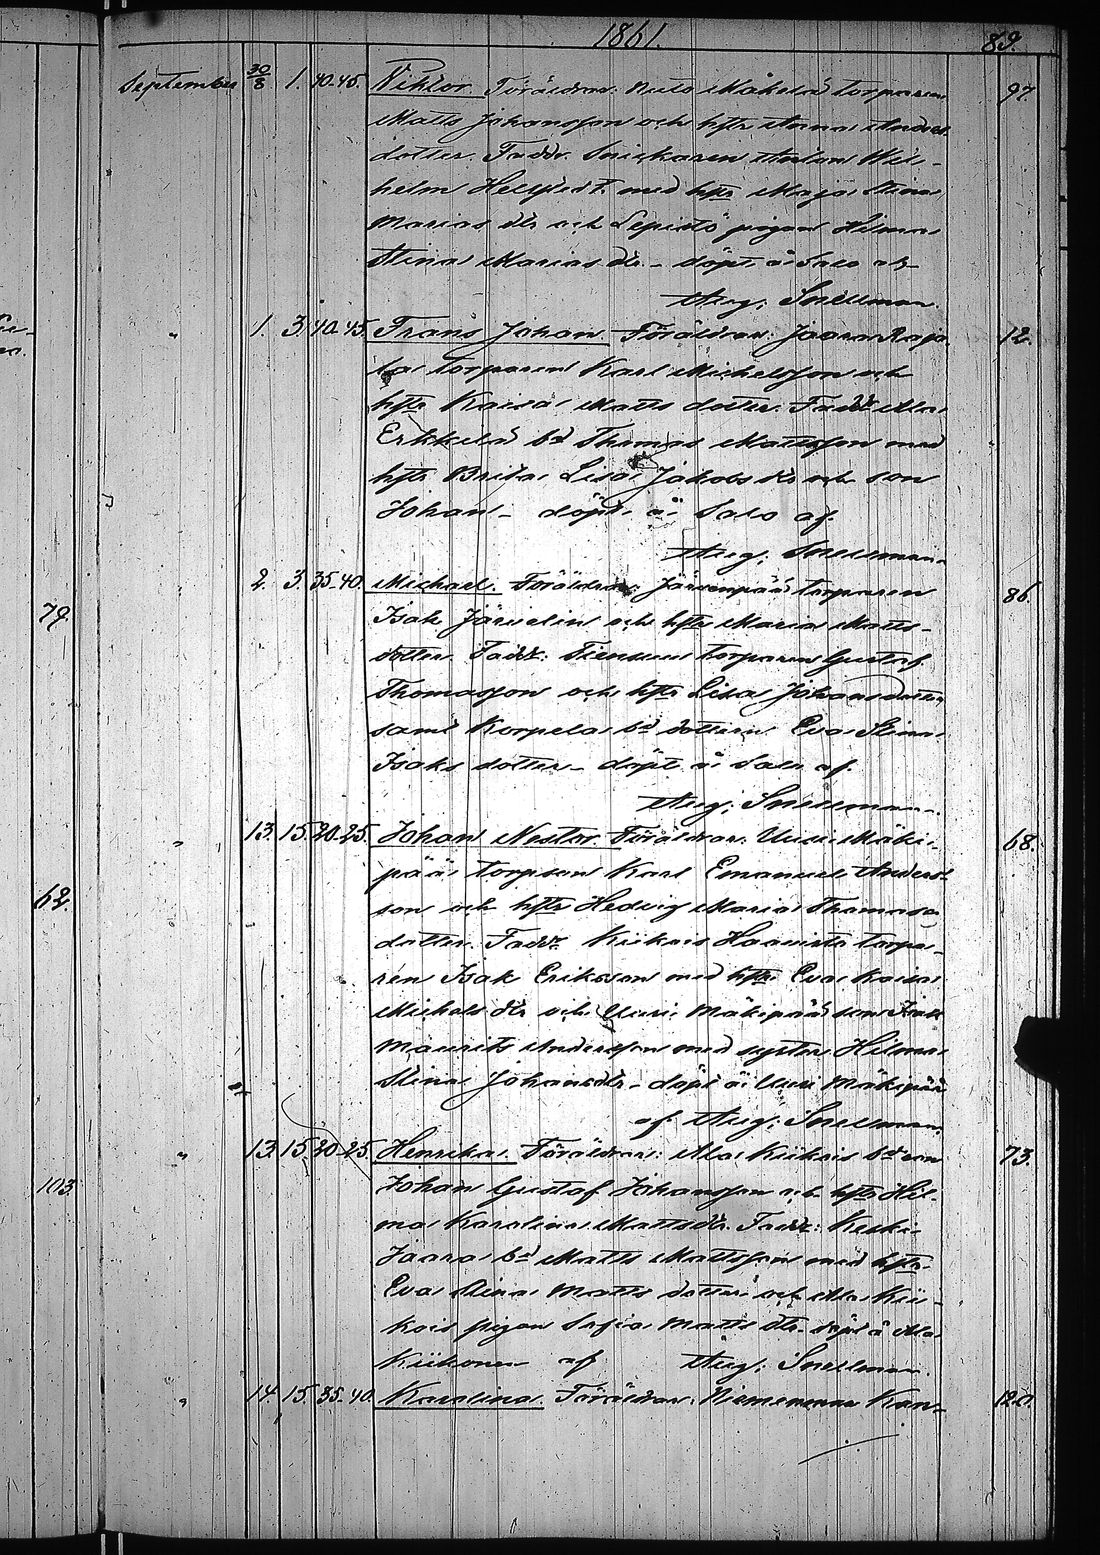 1861.
89.
September 30/8 1. 40-45. Viktor. Föräldrar: Mäkelä torparen 97.
Matts Johansson och hstr Anna Anders
dotter. Faddr. Snickaren Anton Wil-
helm med hstr Maja Stina
Marias dr och Lepistö pigan Hilma
Stina Marias dr - döpt å Salo af
Aug. Snellman.
" 1. 3. 40-45. Frans Johan. Föräldrar: Jaara Raja 12.
la torparen Karl Michelsson och
hstr Kaisa Matts dotter. Faddr Ala
Erkkelä bd Thomas Mattsson med
hstr Brita Lisa Jakobs dr och son
Johan - döpt å Salo af
Aug. Snellman.
2. 3. 35-40. Michael. Föräldrar: Järvenpää torparen 86.
79.
Isak Järvelin och hstr Maria Matts-
dotter. Faddr: torparen Gustaf
Thomasson och hstr Lisa Johansdotter
samt Korpela bd dottern Eva Stina
Isaks dotter - döpt å Salo af
Aug. Snellman.
" 13. 15. 20-25. Johan Nestor. Föräldrar: Uusi Mäki- 68.
pää torpson Karl Emanuel Anders-
62.
son och hstr Hedvig Maria Thomas
dotter. Faddr. Kiikois Haavisto torpa-
ren Isak Eriksson med hstr Eva Kaisa
Michels dr och Uusi Mäkipää son Isak
Maurits Andersson med syster Hilma
Stina Johansdr - döpt å Uusi Mäkipää
af Aug. Snellman.
" 13. 15. 20-25. Henrika. Föräldrar: Ala Kiikois bd son 73.
103.
Johan Gustaf Johansson och hstr Hil-
ma Karolina Mattsdr. Faddr: Keski
Jaara bd Matts Mattsson med hstr
Eva Stina Matts dotter och Ala Kii-
kois pigan Sofia Matts dr. döpt å Ala
Kiikonen af Aug. Snellman.
" 14. 15. 35-40. Karolina. Föräldrar: Niemenmaa Kan- 120.